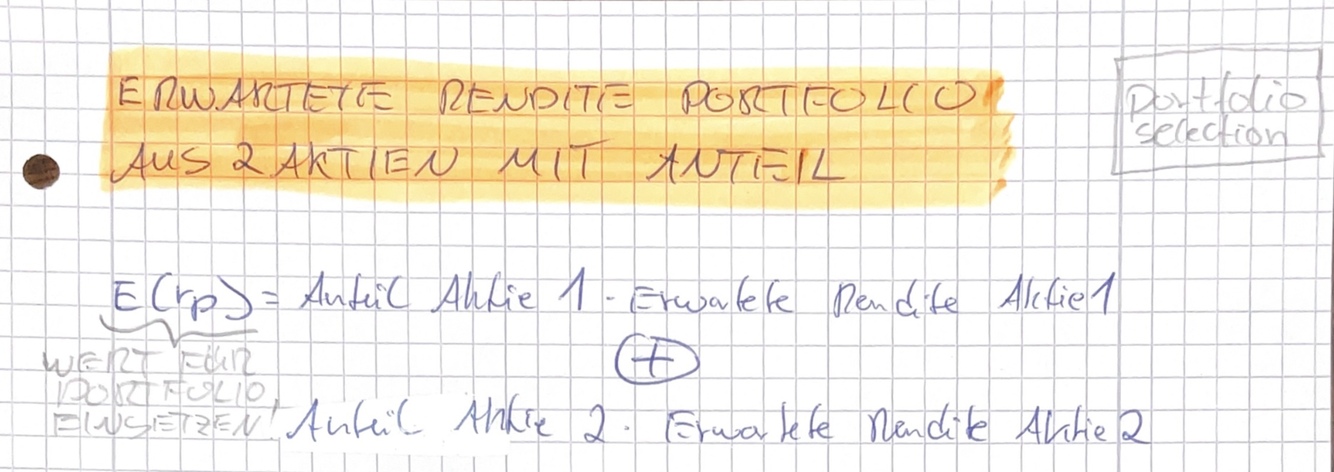 ERWARTETE RENDITE PORTFOLIO
AUS 2 AKTIEN MIT ANTEIL
portfolio
selection
E(rp) = Anteil Aktie 1 · Erwartete Rendite Aktie 1
+
WERT FÜR
PORTFOLIO
EINSETZEN!
Anteil Aktie 2 · Erwartete Rendite Aktie 2